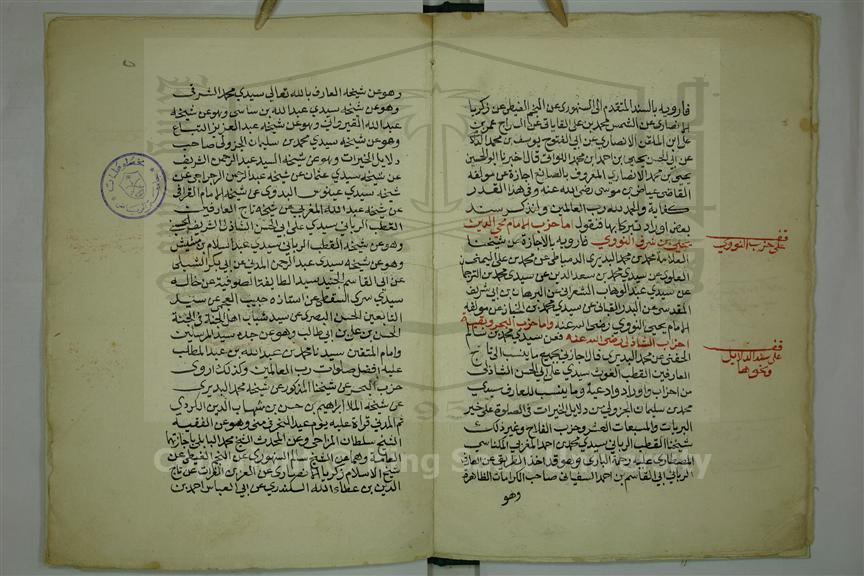 فأرويه بالسند المتقدم الى السنهوري عن النجم الغيطي عن زكريا
الانصاري عن الشمس محمد بن علي القاياتي عن السراج عمر بن
علي ابن الملقن الانصاري عن ابي الفتوح يوسف بن محمد الدلا
عن ابي الحسن يحيى بن احمد بن محمد اللواتي قال اخبرنا ابو الحسين
يحيى بن محمد الانصاري المعروف بالصائغ اجازة عن مؤلفه
القاضي عياض بن موسى رضي الله عنه وفي هذا القدر
كفاية والحمد لله رب العالمين ولنذكر سند
بعض اوراد تبركا بها فنقول اما حزب الامام محي الدين
يحيى بن شرف النووي فأرويه بالاجازة عن شيخنا
العلامة محمد بن محمد البديري الدمياطي عن محمد بن علي اليمني
العلوي عن سيدي محمد بن سعد الدين عن سيدي محمد بن الترجما
عن سيدي عبد الوهاب الشعراني عن البرهان بن ابي شريف
المقدسي عن البدر القباني عن سيدي محمد بن الخباز عن مؤلفه
الامام يحيى النووي رضي الله عنه واما حزب البحر وبقية
احزاب الشاذلي رضي الله عنه فعن سيدي محمد بن سالم
الحفني عن محمد البديري قالا اجازني بجميع ما ينسب الى تاج
العارفين القطب الغوث سيدي علي ابي الحسن الشاذلي
من احزاب واوراد وادعية وما ينسب للعارف سيدي
محمد بن سليمان الجزولي من دلايل الخيرات في الصلوة على خير
البريات والمسبعات العشر وحزب الفلاح وغير ذلك
شيخنا القطب الرباني سيدي محمد بن احمد المغربي المكناسي
المصطاري عليه رحمة الباري وهو قد اخذ الطريق عن العارف
الرباني ابي القاسم بن احمد السفياني صاحب الكرامات الظاهرة
وهو
قف
على حزب النووي
قف
على سند الدلايل
ونحوها
وهو عن شيخه العارف بالله تعالى سيدي محمد الشرقي
وهو عن شيخه سيدي عبد الله بن ساسي وهو عن شيخه
عبد الله وهو عن شيخه عبد العزيز التباع
وهو عن شيخه سيدي محمد بن سليمان الجزولي صاحب
دلايل الخيرات وهو عن شيخه السيد عبد الرحمن الشريف
عن شيخه سيدي عثمان عن شيخه عبد الرحمن الرجراجي عن
شيخه سيدي البدوي عن شيخه الامام القرافي
عن شيخه عبد الله المغربي عن شيخه تاج العارفين
القطب الرباني سيدي علي ابي الحسن الشاذلي الشريف
وهو عن شيخه القطب الرباني سيدي عبد السلام بن مشيش
وهو عن شيخه سيدي عبد الرحمن المدني عن ابي بكر الشبلي
عن ابي القاسم الجنيد سيد الطايفة الصوفية عن خاله
سيدي سري السقطي عن استاذه حبيب العجمي عن سيد
التابعين الحسن البصري عن سيد شباب اهل الجنة في الجنة
الحسن بن علي بن ابي طالب وهو عن جده سيد المرسلين
وامام المتقين سيدنا محمد بن عبد الله بن عبد المطلب
عليه افضل صلوات رب العالمين وكذلك اروي
حزب البحر عن شيخنا المذكور عن شيخه محمد البديري
عن شيخه الملا ابراهيم بن حسن بن شهاب الدين الكردي
ثم المدني قراءة عليه يوم عيد النحر في منى وهو عن الفقيه
الشيخ سلطان المزاحي وعن المحدث الشيخ محمد البابلي باجازتهما
العامة وهما عن الشيخ سالم السنهوري عن النجم الغيطي عن
شيخ الاسلام زكريا الانصاري عن العز بن الفرات عن تاج
الدين بن عطاء الله السكندري عن ابي العباس احمد بن